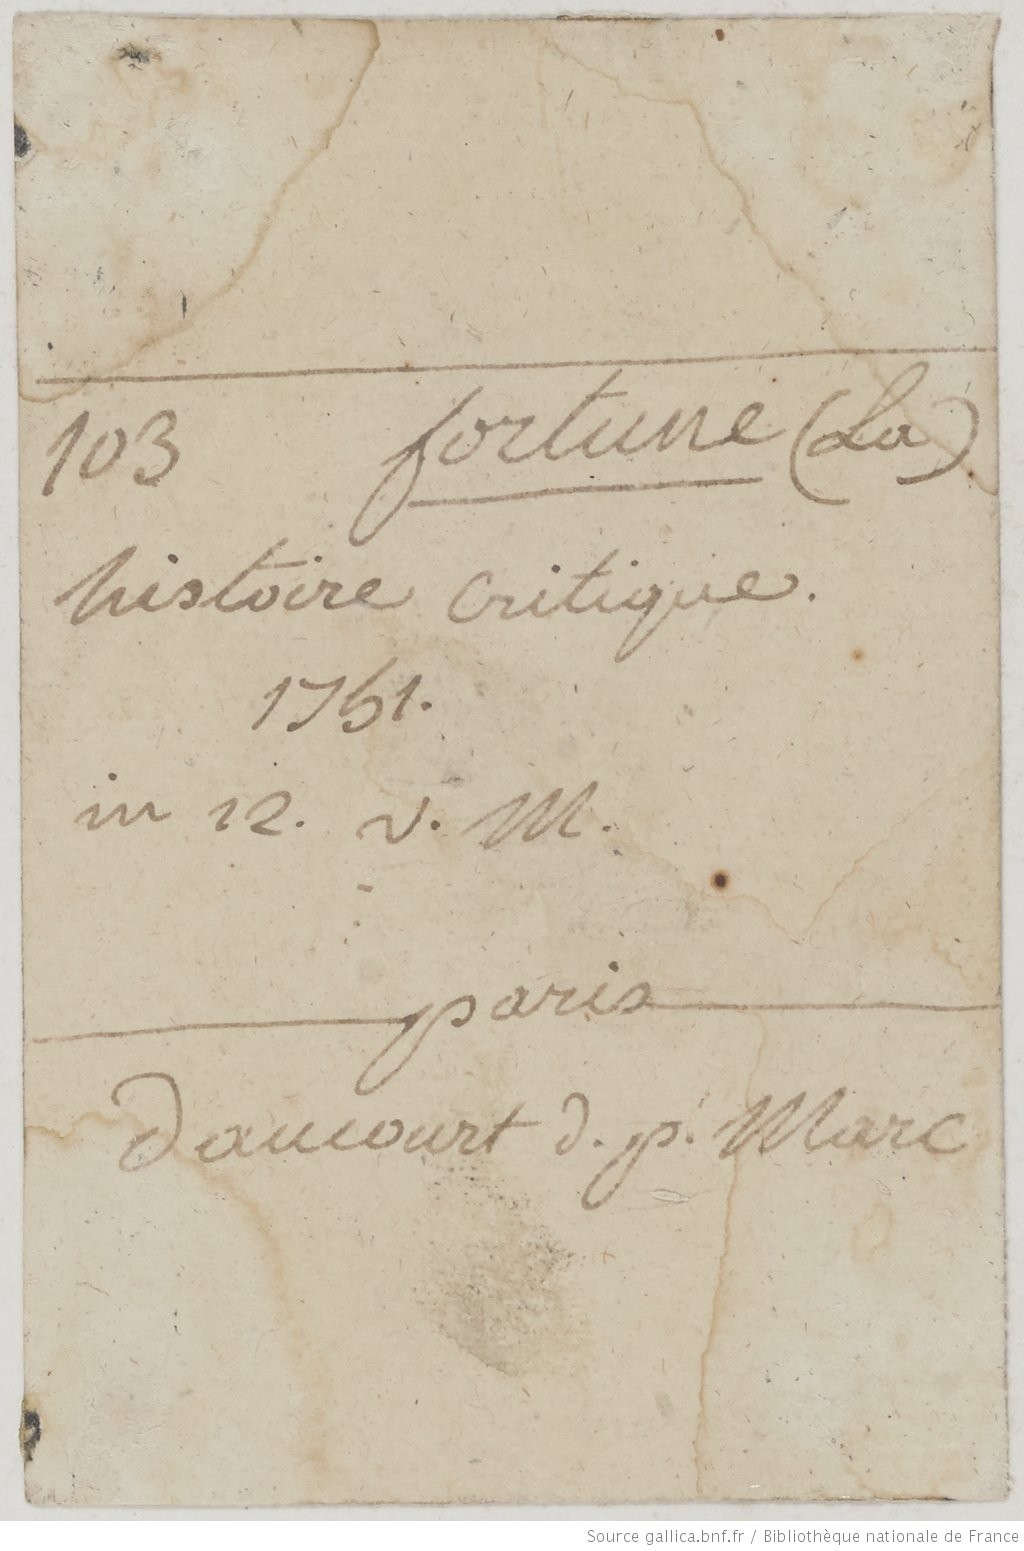 103 fortune (La)
histoire critique.
1751.
in 12. v. M.
paris
Daucourt d. p. Marc
Source gallica.bnf.fr / Bibliothèque nationale de France